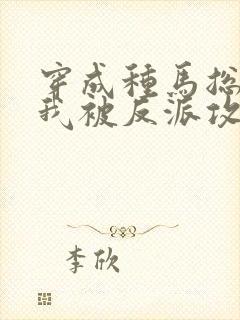 穿成種馬総
我被反派攻
李欣